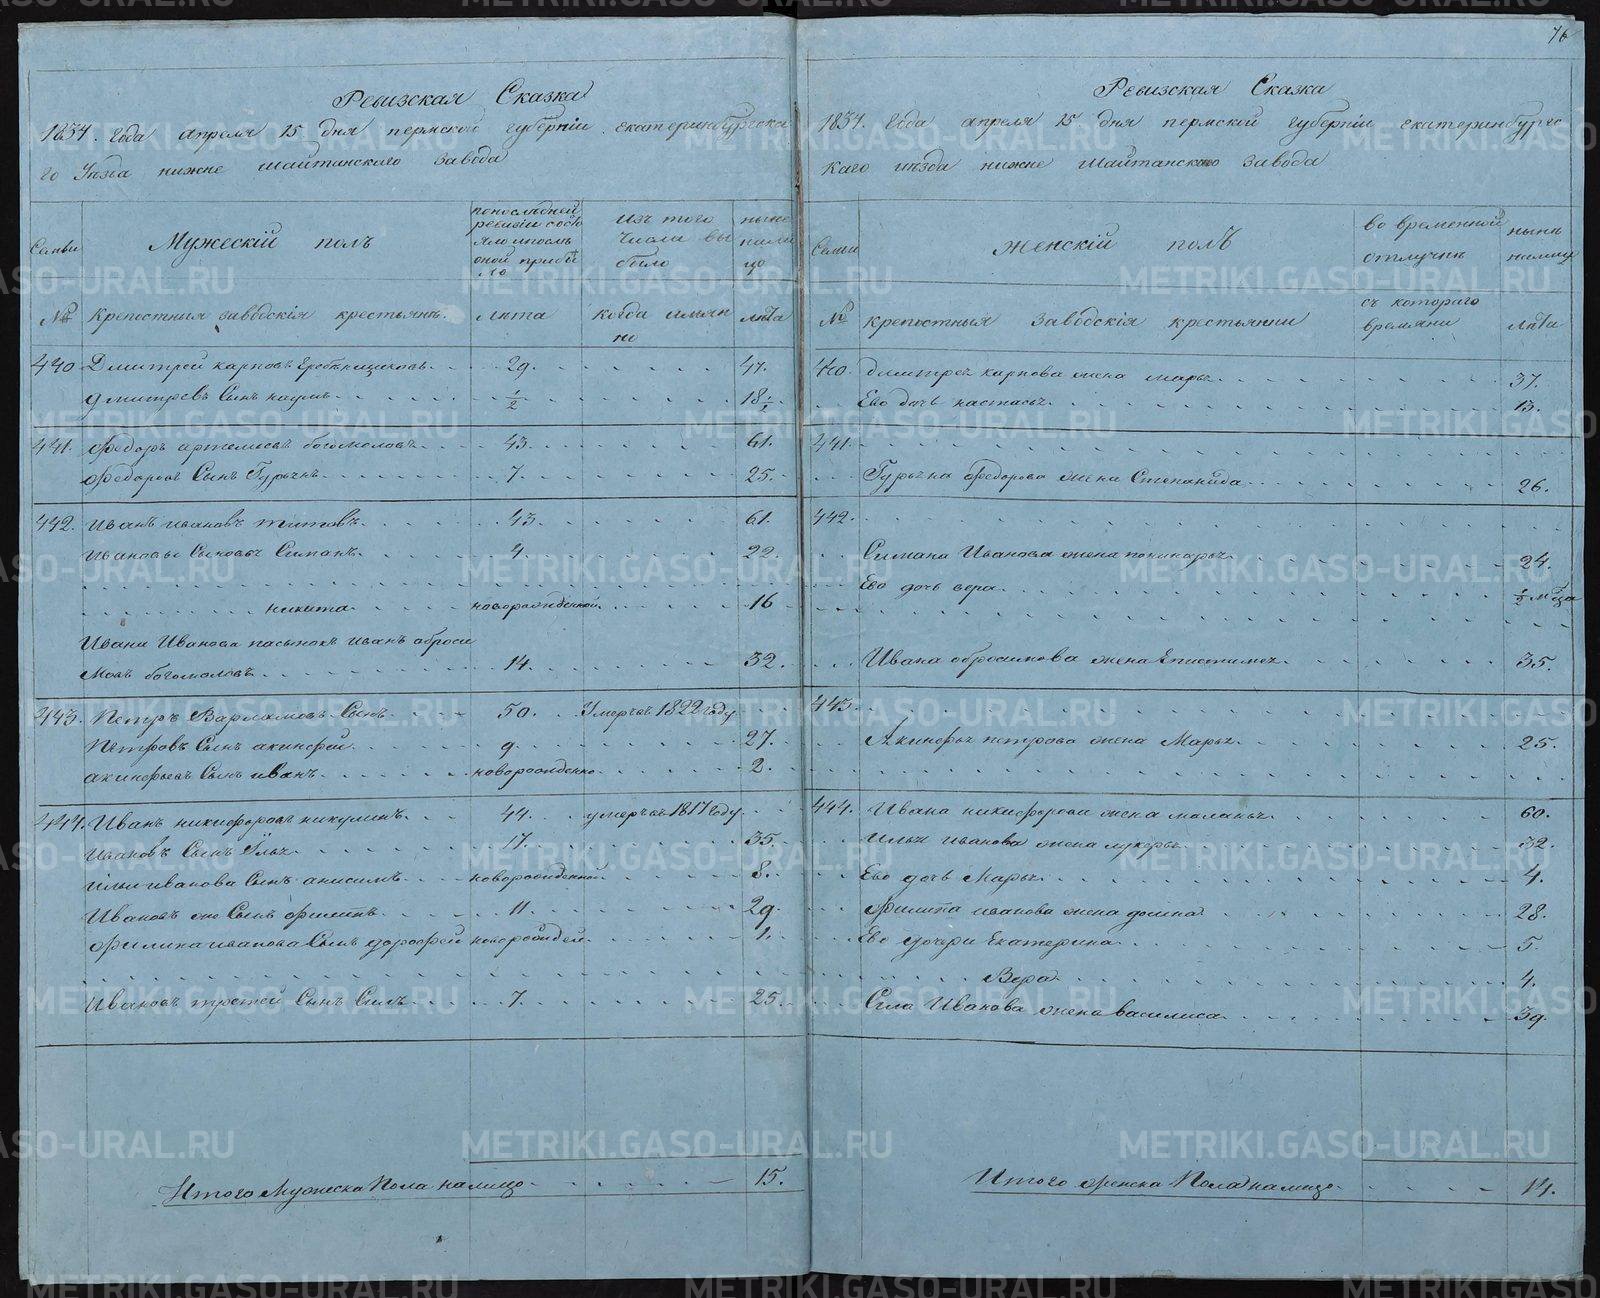 76
Ревизская Сказка
1834. года апреля 25 дня пермской губернiи екатеринбургска
го Уезда нижне шайтанского завода
Семьи
Мужескiй полъ
По последней ревизiи состояло и после оной прибыло
Изъ того числа выбыло
ныне налицо
№
Крепостныя заводскiя крестьянъ.
лета
когда имянно
лета
440 Дмитрей карповъ Гребенщиковъ. 29. 47.
дмитревъ Сынъ наумъ. 1/2 18 1/2
441. Федоръ артемьевъ богомоловъ. 43. 61.
Федоровъ Сынъ Гурьянъ. 7. 25.
442. Иванъ ивановъ титовъ. 43. 61.
Ивановы Сыновья Симанъ. 4. 22.
никита новорожденной. 16
Ивана Иванова пасынокъ иванъ аброси
мовъ богомоловъ. 14. 32.
443. Петръ Варламовъ Сынъ. 50. Умерчев 1822 году
Петровъ Сынъ акинфей. 9. 27.
акинфьевъ Сынъ иванъ. новорожденно. 2.
444. Иванъ никифоровъ никулинъ. 44. умерчев 1817 году
Ивановъ Сынъ Илья. 17. 35.
Ильи иванова Сынъ анисимъ. новорожденной. 8.
Ивановъ же Сынъ филипъ. 11. 29.
Филипа иванова Сынъ дорофей новорожден. 1.
Ивановъ третей Сынъ Сила. 7. 25.
Итого Мужеска Пола налицо. 15.
Ревизская Сказка
1834. года апреля 25 дня пермскiй губернiи екатеринбургс
каго уезда нижне шайтанского завода
Семьи
женскiй полъ
во временной отлучке
ныне налицо
№
крепостныя заводскiя крестьянки
съ котораго времяни
лета
440. дмитрея карпова жена марья. 37.
Ево дочь настасья. 13.
441.
Гурьяна Федорова жена Степанида. 26.
442.
Симана Иванова жена поликарья. 24.
Ево дочь вера. 1/2 м-ца
Ивана обросимова жена Епистимея. 35.
443.
Акинфья петрова жена Марья. 25.
444. Ивана никифорова жена маланья. 60.
Ильи иванова жена лукерья. 32.
Ево дочь Марья. 4.
Филипа иванова жена домна. 28.
Ево дочери Екатерина. 5.
Вера 4.
Сила Иванова жена василиса. 39.
Итого женска Пола налицо. 14.
METRIKI.GASO-URAL.RU